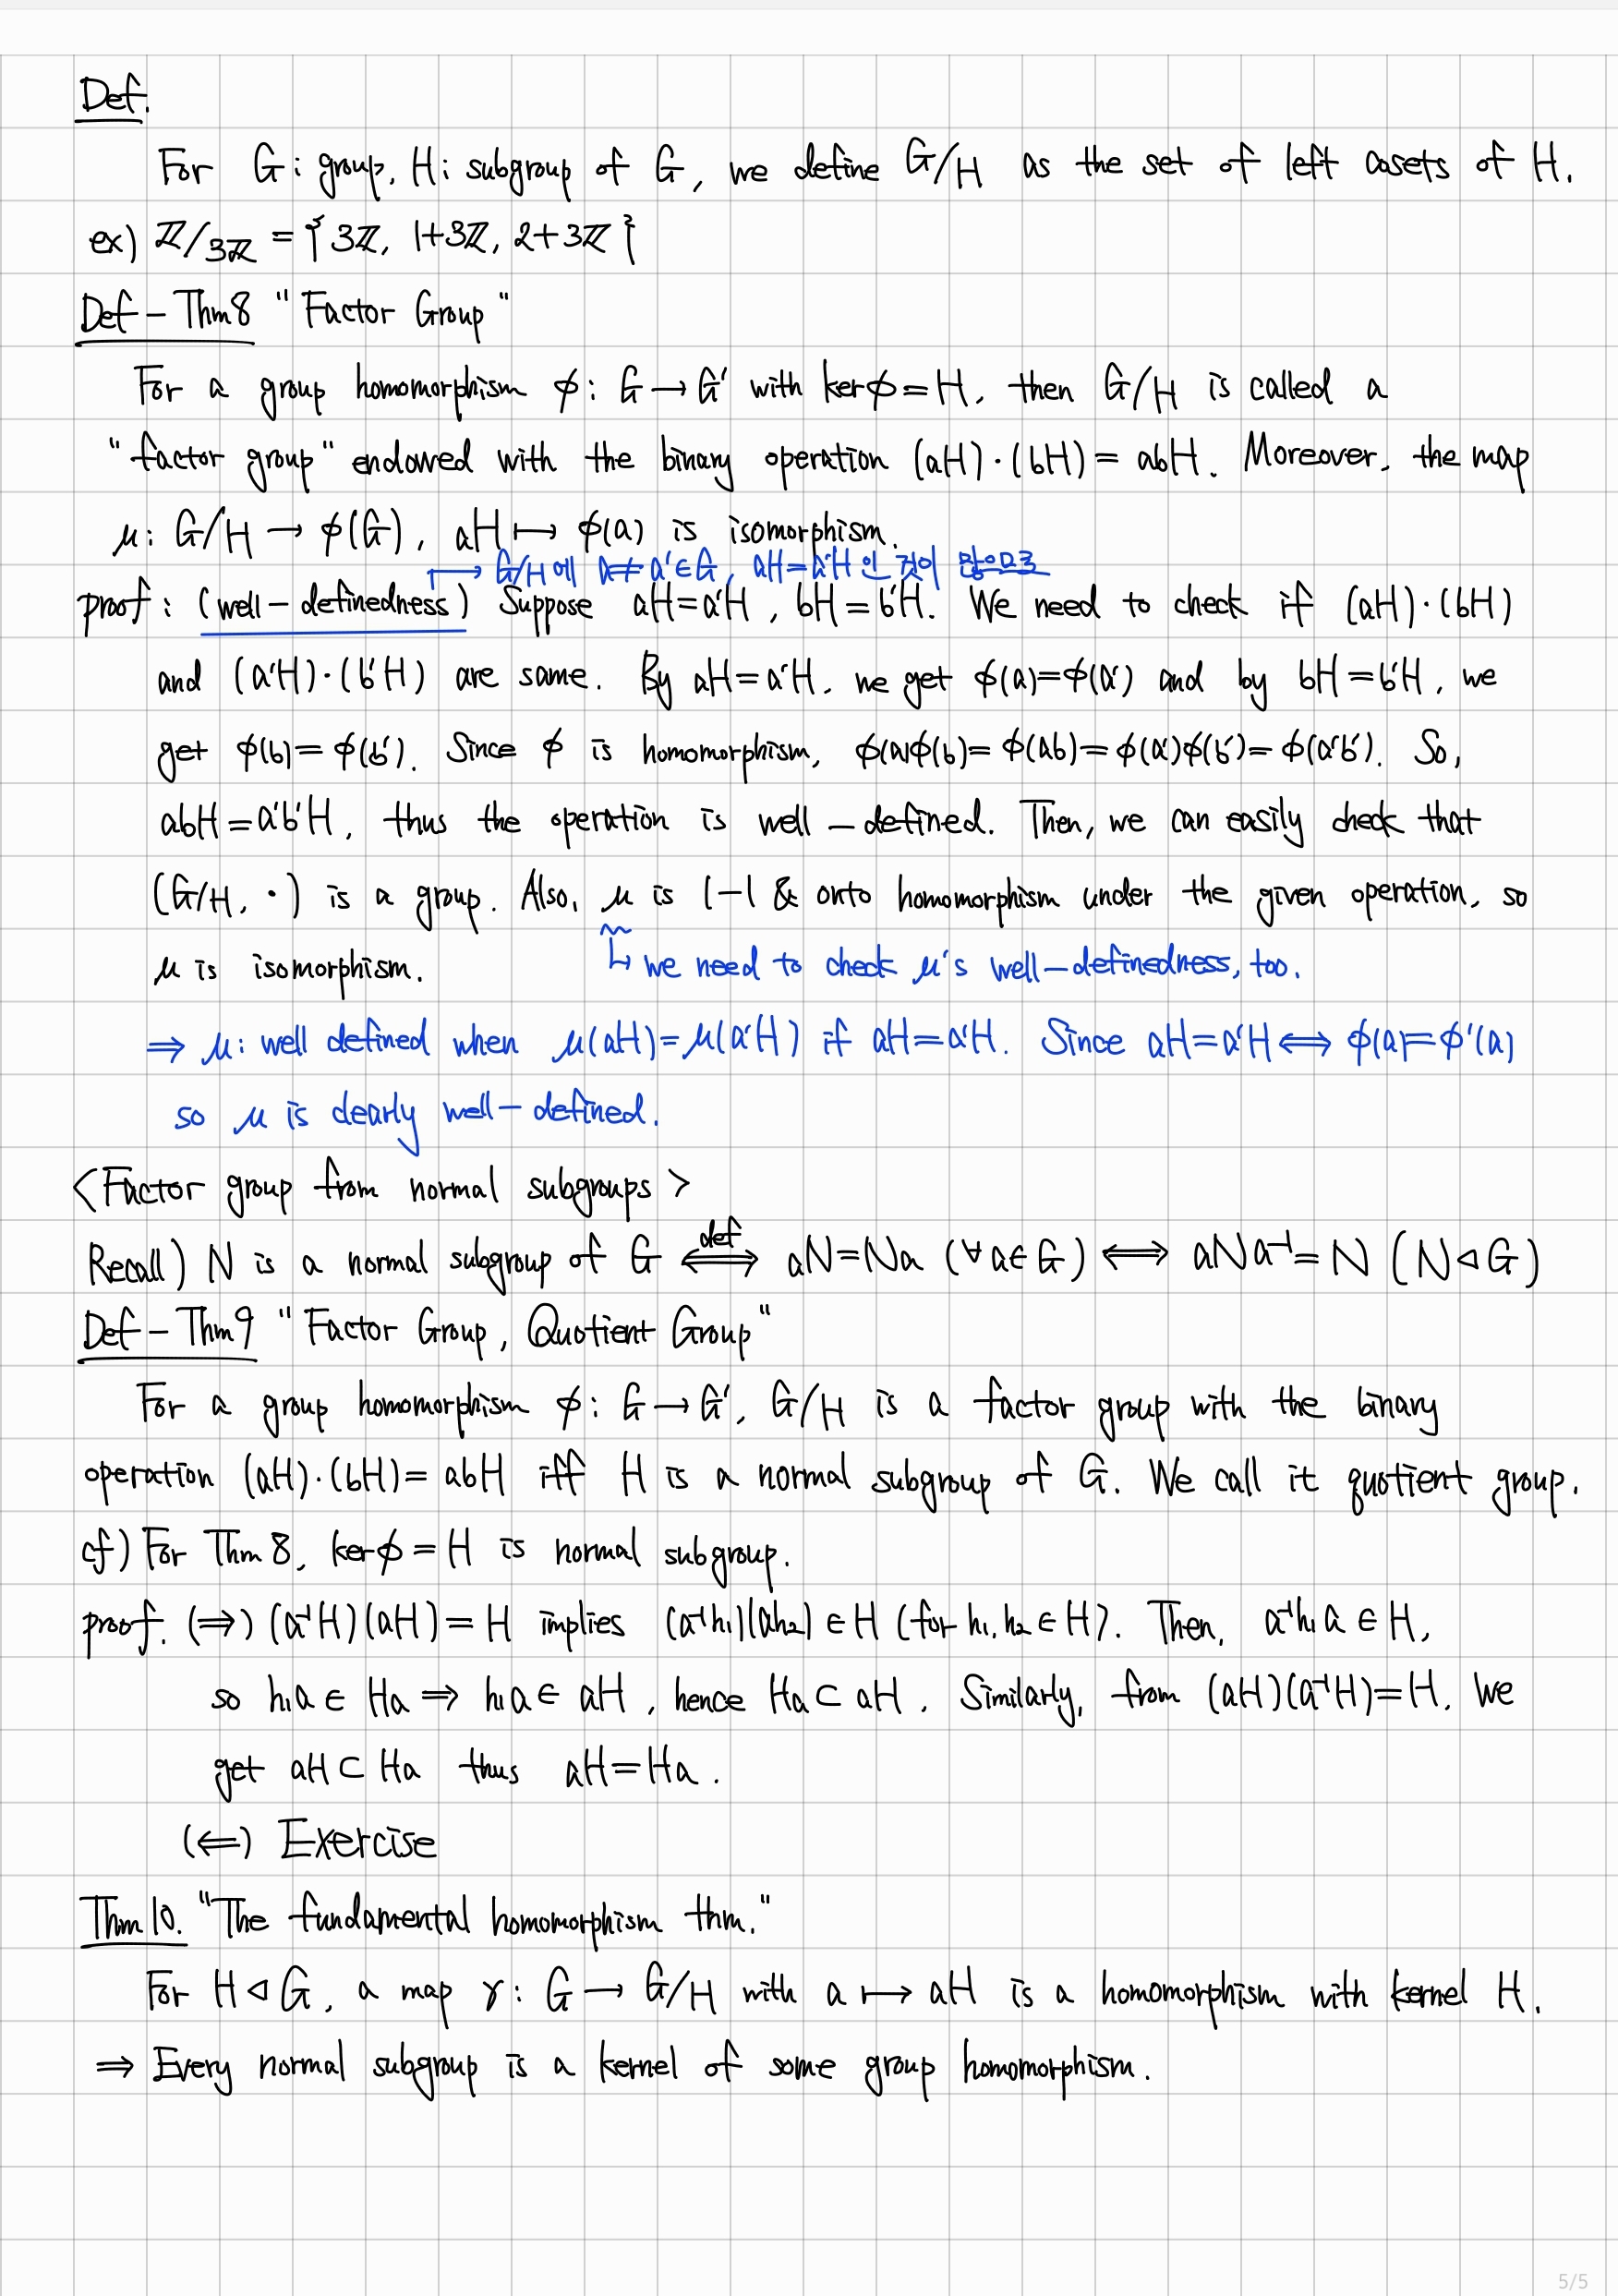 Def.
For G : group, H : subgroup of G, we define G/H as the set of left cosets of H.
ex) ℤ/3ℤ = { 3ℤ, 1+3ℤ, 2+3ℤ }
Def - Thm8 "Factor Group"
For a group homomorphism ϕ : G → G' with kerϕ = H, then G/H is called a
"factor group" endowed with the binary operation (aH)·(bH) = abH. Moreover, the map
μ : G/H → ϕ(G), aH ↦ ϕ(a) is isomorphism.
↦ G/H에 a ≠ a' ∈ G, aH = a'H 인 것이 많으므로
proof : (well - definedness) Suppose aH = a'H, bH = b'H. We need to check if (aH)·(bH)
and (a'H)·(b'H) are same. By aH = a'H, we get ϕ(a)=ϕ(a') and by bH = b'H, we
get ϕ(b) = ϕ(b'). Since ϕ is homomorphism, ϕ(a)ϕ(b) = ϕ(ab) = ϕ(a')ϕ(b') = ϕ(a'b'). So,
abH = a'b'H, thus the operation is well - defined. Then, we can easily check that
(G/H, ·) is a group. Also, μ is 1-1 & onto homomorphism under the given operation, so
μ is isomorphism.
↳ we need to check μ's well-definedness, too.
⇒ μ : well defined when μ(aH) = μ(a'H) if aH = a'H. Since aH = a'H ⟺ ϕ(a) = ϕ'(a)
so μ is clearly well-defined.
<Factor group from normal subgroups>
Recall) N is a normal subgroup of G ⟺(def) aN = Na (∀a∈G) ⟺ aNa⁻¹ = N (N ⊲ G)
Def - Thm9 "Factor Group, Quotient Group"
For a group homomorphism ϕ : G → G', G/H is a factor group with the binary
operation (aH)·(bH) = abH iff H is a normal subgroup of G. We call it quotient group.
cf) For Thm 8, kerϕ = H is normal subgroup.
proof. (⇒) (a⁻¹H)(aH) = H implies (a⁻¹h₁)(ah₂) ∈ H (for h₁, h₂ ∈ H). Then, a⁻¹h₁a ∈ H,
so h₁a ∈ Ha ⇒ h₁a ∈ aH, hence Ha ⊂ aH. Similarly, from (aH)(a⁻¹H) = H. We
get aH ⊂ Ha thus aH = Ha.
(⇐) Exercise
Thm 10. "The fundamental homomorphism thm."
For H ⊲ G, a map γ : G → G/H with a ↦ aH is a homomorphism with kernel H.
⇒ Every normal subgroup is a kernel of some group homomorphism.
5/5